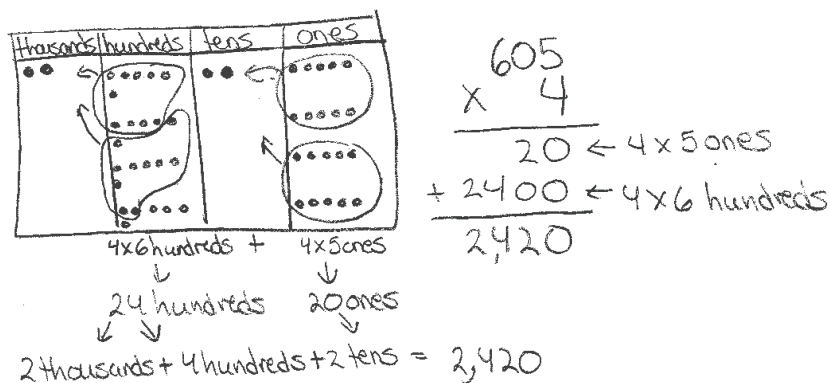 thousands hundreds tens ones
4x6 hundreds + 4x5 ones
↓ ↓
24 hundreds 20 ones
↓ ↓ ↓
2 thousands + 4 hundreds + 2 tens = 2,420
605
x 4
20 ← 4 x 5 ones
+ 2400 ← 4 x 6 hundreds
2,420